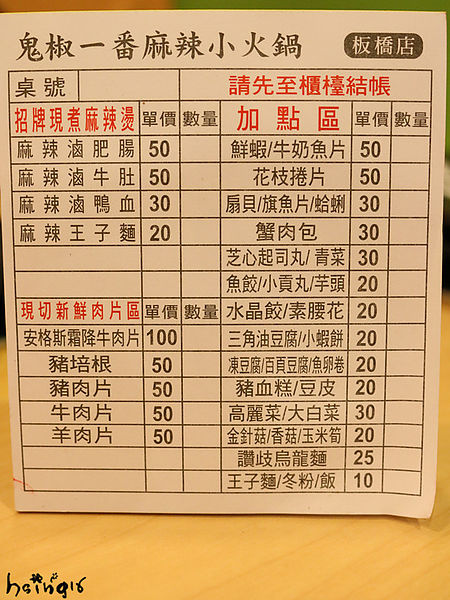 鬼椒一番麻辣小火鍋 板橋店
桌號 請先至櫃檯結帳
招牌現煮麻辣燙 單價 數量 加點區 單價 數量
麻辣滷肥腸 50 鮮蝦/牛奶魚片 50
麻辣滷牛肚 50 花枝捲片 50
麻辣滷鴨血 30 扇貝/旗魚片/蛤蜊 30
麻辣王子麵 20 蟹肉包 30
芝心起司丸/青菜 30
魚餃/小貢丸/芋頭 20
現切新鮮肉片區 單價 數量 水晶餃/素腰花 20
安格斯霜降牛肉片 100 三角油豆腐/小蝦餅 20
豬培根 50 凍豆腐/百頁豆腐/魚卵卷 20
豬肉片 50 豬血糕/豆皮 20
牛肉片 50 高麗菜/大白菜 30
羊肉片 50 金針菇/香菇/玉米筍 20
讚歧烏龍麵 25
王子麵/冬粉/飯 10
hsing16